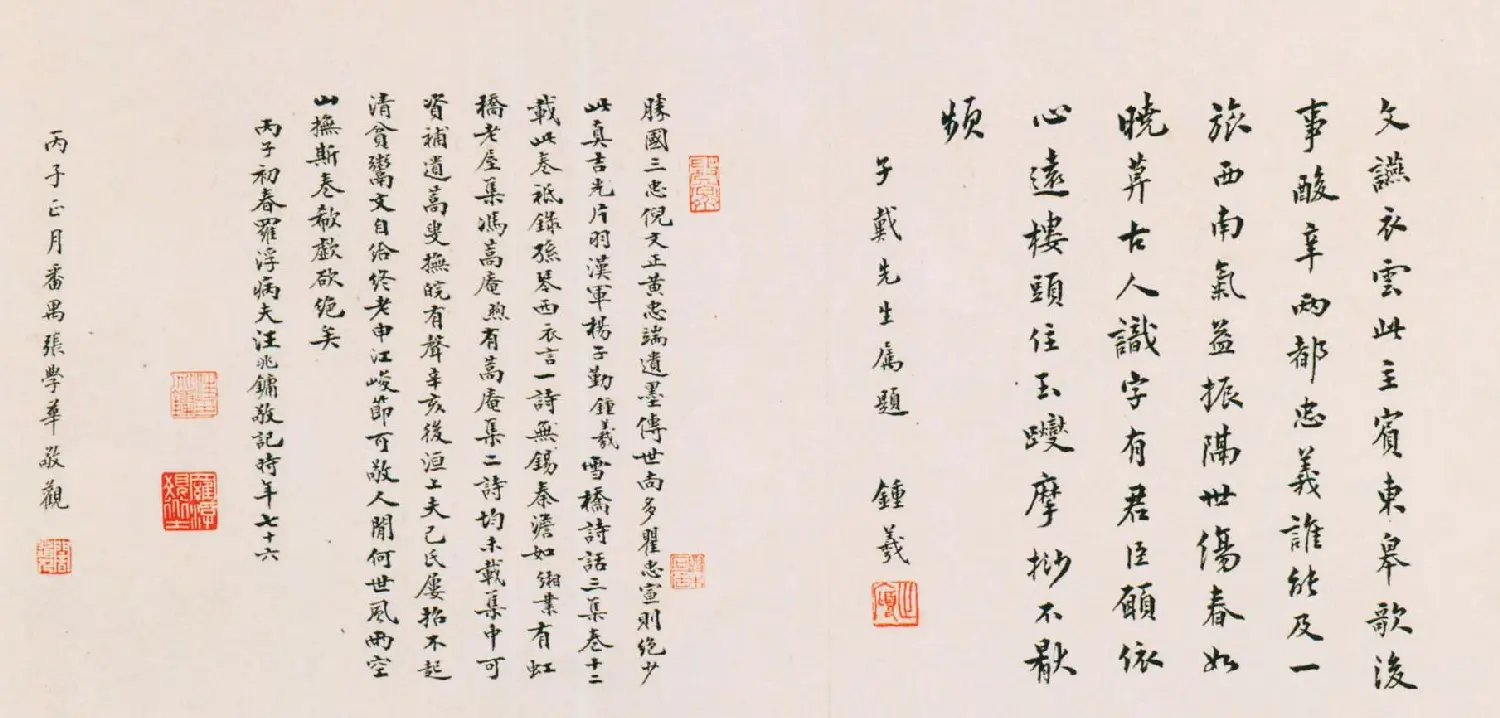 文讌衣雲此主賓東皋歌後
事酸辛兩都忠義誰能及一
旅西南氣益振隔世傷春如
曉莽古人識字有君臣願依
心遠樓頭住玉躞摩挱不厭
頻
子戴先生属題 鍾羲
勝國三忠倪文正黃忠端遺墨傳世尚多瞿忠宣則絶少
此真吉光片羽漢軍楊子勤鍾羲雪橋詩話三集卷十二
載此卷祗錄孫琴西衣言一詩無錫秦澹如緗業有虹
橋老屋集馮蒿庵煦有蒿庵集二詩均未載集中可
資補遺蒿叟撫皖有聲辛亥後洹上夫己氏屢招不起
清貧鬻文自给終老申江峻節可敬人間何世風雨空
山撫斯卷欷歔欲絶矣
丙子初春羅浮病夫汪兆鏞敬記時年七十六
丙子正月番禺張學華敬觀